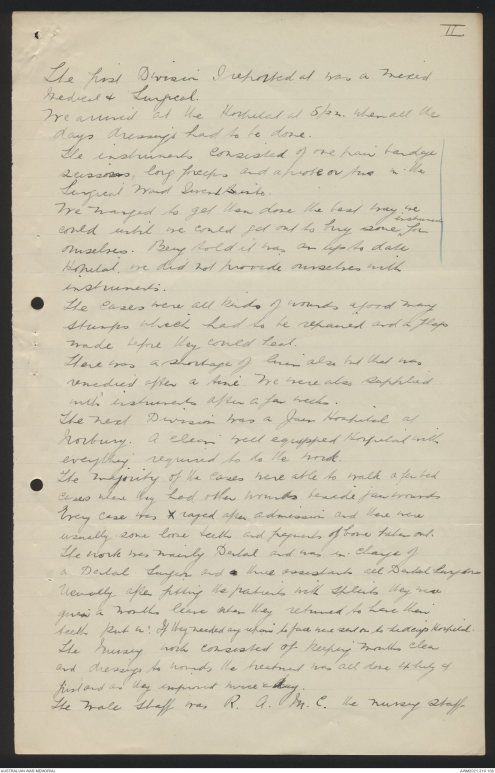 II
The first Division I reported at was a mixed
Medical & Surgical.
We arrived at the Hospital at 5 p.m. when all the
days dressings had to be done.
The instruments consisted of one pair bandage
scissors, long forceps and a probe or two in the
Surgical Ward
We manged to get them done the best way we
could until we could get out to buy some instruments for
ourselves. Being told it was an up to date
Hospital, we did not provide ourselves with
instruments.
The cases were all kinds of wounds a good many
stumps which had to be repaired and flaps
made before they could heal.
There was a shortage of linen also but that was
remedied after a time. We were also supplied
with instruments after a few weeks.
The next Division was a Jaw Hospital at
Norbury. A clean well equipped Hospital with
everything required to do the work.
The majority of the cases were able to walk a few bed
cases were they had other wounds beside jaw wounds
Every case was X rayed after admission and there were
usually some loose teeth and fragments of bone taken out.
The work was mainly Dental and was in charge of
a Dental Surgeon and three assistants all Dental Surgeons
Usually after fitting the patients with splints they were
given a months leave when they returned to have their
teeth put in. If they needed any repairs to face were sent on to Hospital.
The Nursing work consisted of keeping mouths clean
and dressings to wounds the treatment was all done
first and as they improved twice a day.
The Male Staff was R. A. M. C. the nursing staff
AUSTRALIAN WAR MEMORIAL